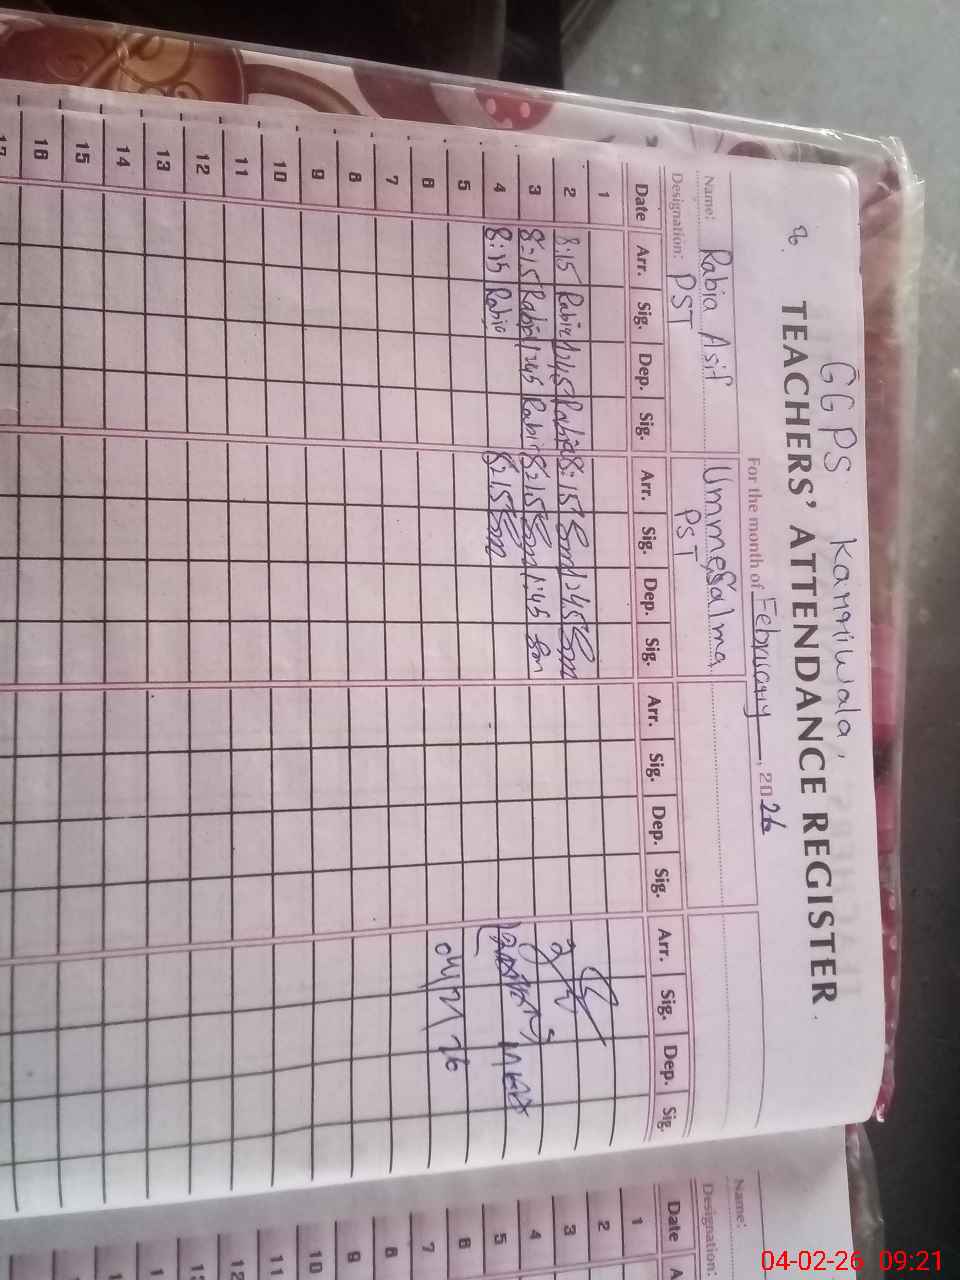 GGPS Kamriwala,
8. TEACHERS' ATTENDANCE REGISTER
For the month of February, 2026
Name: Rabia Asif Ummesalma
Designation: PST PST
Date Arr. Sig. Dep. Sig. Arr. Sig. Dep. Sig. Arr. Sig. Dep. Sig. Arr. Sig. Dep. Sig.
1
2 8:15 Rabia 1:45 Rabia 8:15 1:45
3 8:15 Rabia 1:45 Rabia 8:15 1:45
4 8:15 Rabia 8:15
5
6
7
8
9
10
11
12
13
14
15
16
17
04/2/26
Name:
Designation:
Date A
1
2
3
4
5
6
7
8
9
10
11
12
04-02-26 09:21